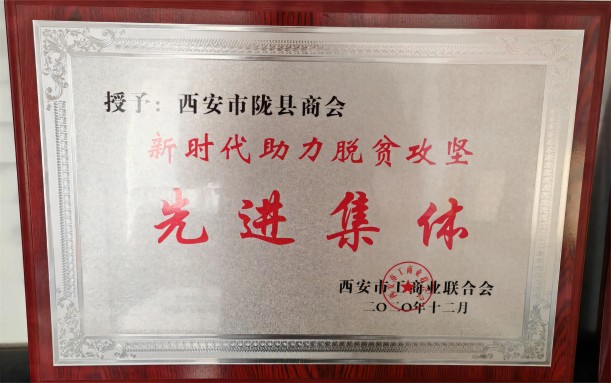 授予：西安市陇县商会
新时代助力脱贫攻坚
先进集体
西安市工商业联合会
二〇二〇年十二月